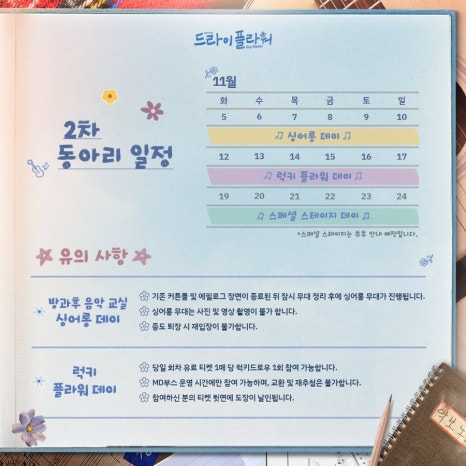 드라이플라워
2차
동아리 일정
11월
화 수 목 금 토 일
5 6 7 8 9 10
♫ 싱어롱 데이 ♫
12 13 14 15 16 17
♫ 럭키 플라워 데이 ♫
19 20 21 22 23 24
♫ 스페셜 스테이지 데이 ♫
*스페셜 스테이지는 추후 안내 예정입니다.
유의 사항
방과후 음악 교실
싱어롱 데이
기존 커튼콜 및 에필로그 장면이 종료된 뒤 잠시 무대 정리 후에 싱어롱 무대가 진행됩니다.
싱어롱 무대는 사진 및 영상 촬영이 불가 합니다.
중도 퇴장 시 재입장이 불가합니다.
럭키
플라워 데이
당일 회차 유료 티켓 1매 당 럭키드로우 1회 참여 가능합니다.
MD부스 운영 시간에만 참여 가능하며, 교환 및 재추첨은 불가합니다.
참여하신 분의 티켓 뒷면에 도장이 날인됩니다.
악보 노